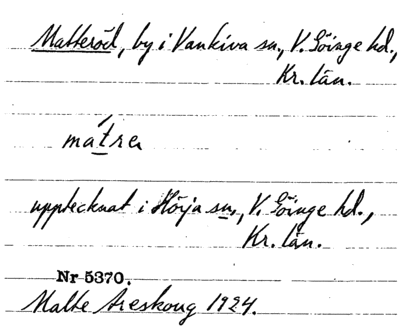 Matteröd, by i Vankiva sn., V. Göinge hd.,
Kr. län.
mátre
upptecknat i Hörja sn., V. Göinge hd.,
Kr. län.
Nr 5370.
Malte Areskoug 1924.